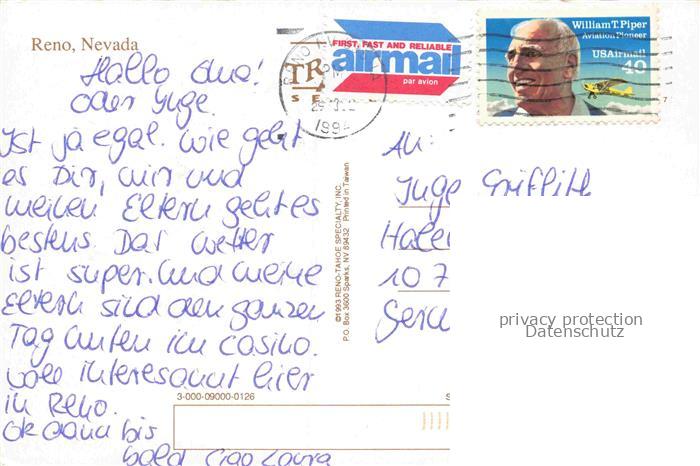 Reno, Nevada
Hallo Oma!
Oder Inge.
Ist ja egal. Wie geht
es Dir, mir und
meinen Eltern geht es
bestens. Dat wetter
ist super. Und meine
Eltern sind den ganzen
Tag unten im casino.
voll interessant hier
in Reno.
Ok dann bis
bald Ciao Laura
©1993 RENO-TAHOE SPECIALTY, INC.
P.O. Box 3600 Sparks, NV 89432 Printed in Taiwan
3-000-09000-0126
FIRST, FAST AND RELIABLE
airmail
par avion
1994
William T. Piper
Aviation Pioneer
USAirmail
40
7
An:
Inge Griffith
10 7
privacy protection
Datenschutz